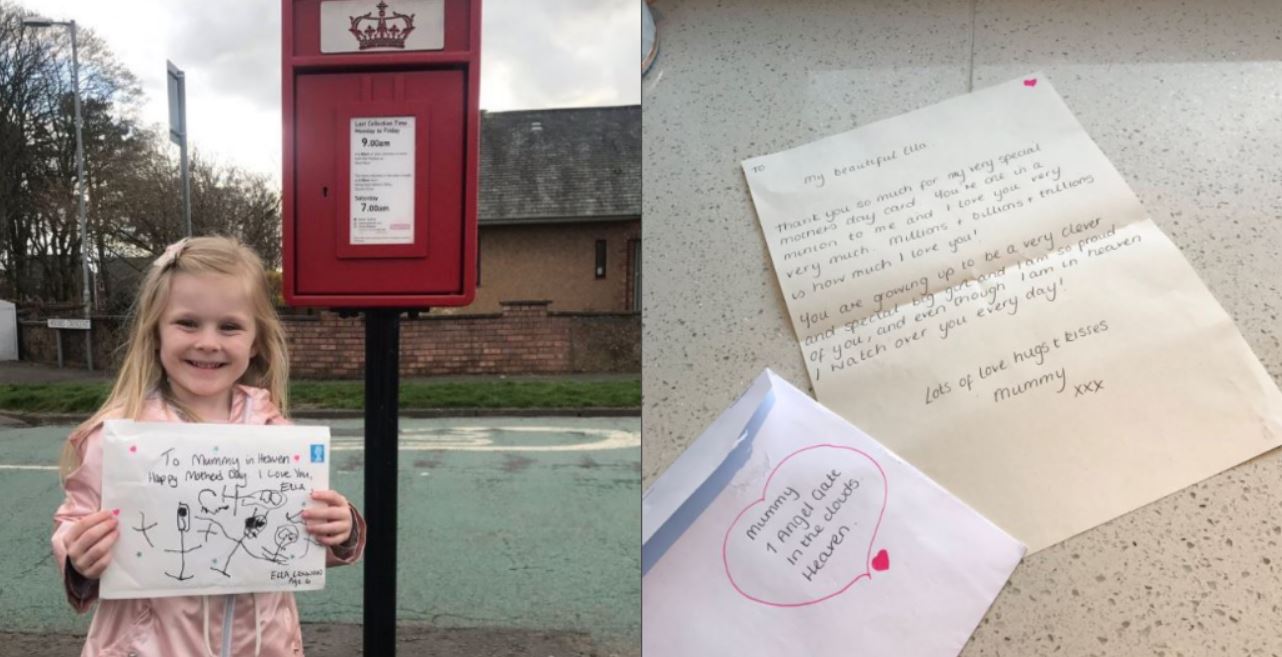 Last Collection Time
Monday to Friday
9.00am
Saturday
7.00am
To Mummy in Heaven
Happy Mothers Day I Love You,
ELLA
Age 6
TO
my beautiful Ella
Thank you so much for my very special
mothers day card. You're one in a
million to me and I love you very
very much. Millions + billions + trillions
is how much I love you!
You are growing up to be a very clever
and special big girl and I am so proud
of you, and even though I am in heaven
I watch over you every day!
Lots of love hugs & kisses
mummy xxx
Mummy
1 Angel Gate
In the clouds
Heaven.